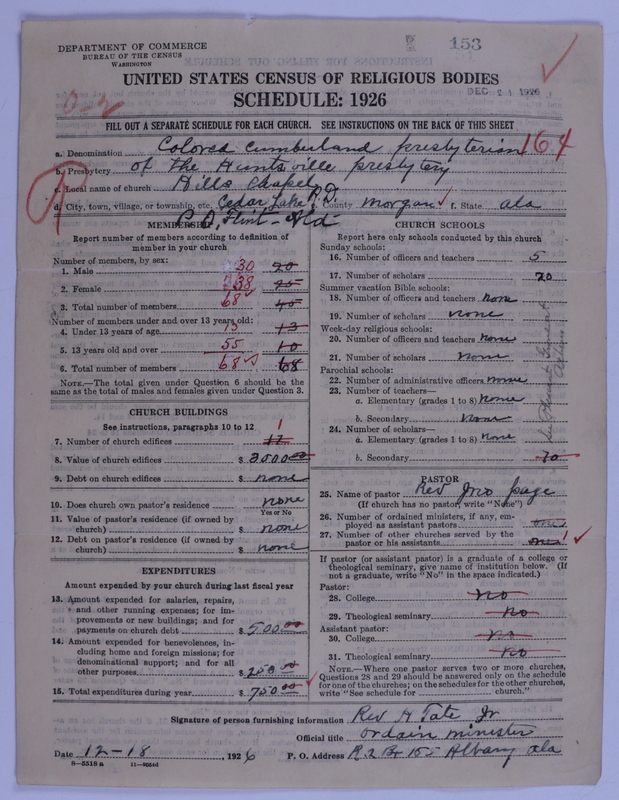 DEPARTMENT OF COMMERCE
BUREAU OF THE CENSUS
WASHINGTON
153
UNITED STATES CENSUS OF RELIGIOUS BODIES
DEC 21 1926
SCHEDULE: 1926
FILL OUT A SEPARATE SCHEDULE FOR EACH CHURCH. SEE INSTRUCTIONS ON THE BACK OF THIS SHEET
a. Denomination Colored Cumberland presbyterian 164
b. Presbytery of the Huntsville presbytery
c. Local name of church Hills Chapel
d. City, town, village, or township, etc. Cedar Lake R.D. County morgan f. State ala
P.O. Flint - Ala
MEMBERSHIP
Report number of members according to definition of member in your church
Number of members, by sex:
1. Male 30 20
2. Female 38 25
3. Total number of members 68 45
Number of members under and over 13 years old:
4. Under 13 years of age 13 13
5. 13 years old and over 55 10
6. Total number of members 68 68
NOTE.—The total given under Question 6 should be the same as the total of males and females given under Question 3.
CHURCH BUILDINGS
See instructions, paragraphs 10 to 12
7. Number of church edifices 1
8. Value of church edifices $ 3000.00
9. Debt on church edifices $ none
10. Does church own pastor's residence none
Yes or No
11. Value of pastor's residence (if owned by church) $ none
12. Debt on pastor's residence (if owned by church) $ none
EXPENDITURES
Amount expended by your church during last fiscal year
13. Amount expended for salaries, repairs, and other running expenses; for improvements or new buildings; and for payments on church debt $ 500.00
14. Amount expended for benevolences, including home and foreign missions; for denominational support; and for all other purposes $ 250.00
15. Total expenditures during year $ 750.00
CHURCH SCHOOLS
Report here only schools conducted by this church
Sunday schools:
16. Number of officers and teachers 5
17. Number of scholars 70
Summer vacation Bible schools:
18. Number of officers and teachers none
19. Number of scholars none
Week-day religious schools:
20. Number of officers and teachers none
21. Number of scholars none
Parochial schools:
22. Number of administrative officers none
23. Number of teachers—
a. Elementary (grades 1 to 8) none
b. Secondary none
24. Number of scholars—
a. Elementary (grades 1 to 8) none
b. Secondary 70
PASTOR
25. Name of pastor Rev Jno page
(If church has no pastor, write "None")
26. Number of ordained ministers, if any, employed as assistant pastors one
27. Number of other churches served by the pastor or his assistants 1
If pastor (or assistant pastor) is a graduate of a college or theological seminary, give name of institution below. (If not a graduate, write "No" in the space indicated.)
Pastor:
28. College no
29. Theological seminary no
Assistant pastor:
30. College no
31. Theological seminary no
NOTE.—Where one pastor serves two or more churches, Questions 28 and 29 should be answered only on the schedule for one of the churches; on the schedules for the other churches, write "See schedule for church."
Signature of person furnishing information Rev H Tate Jr
Official title ordain minister
Date 12-18, 1926 P. O. Address R. 2 Bx 155 Albany ala
8-5518 a